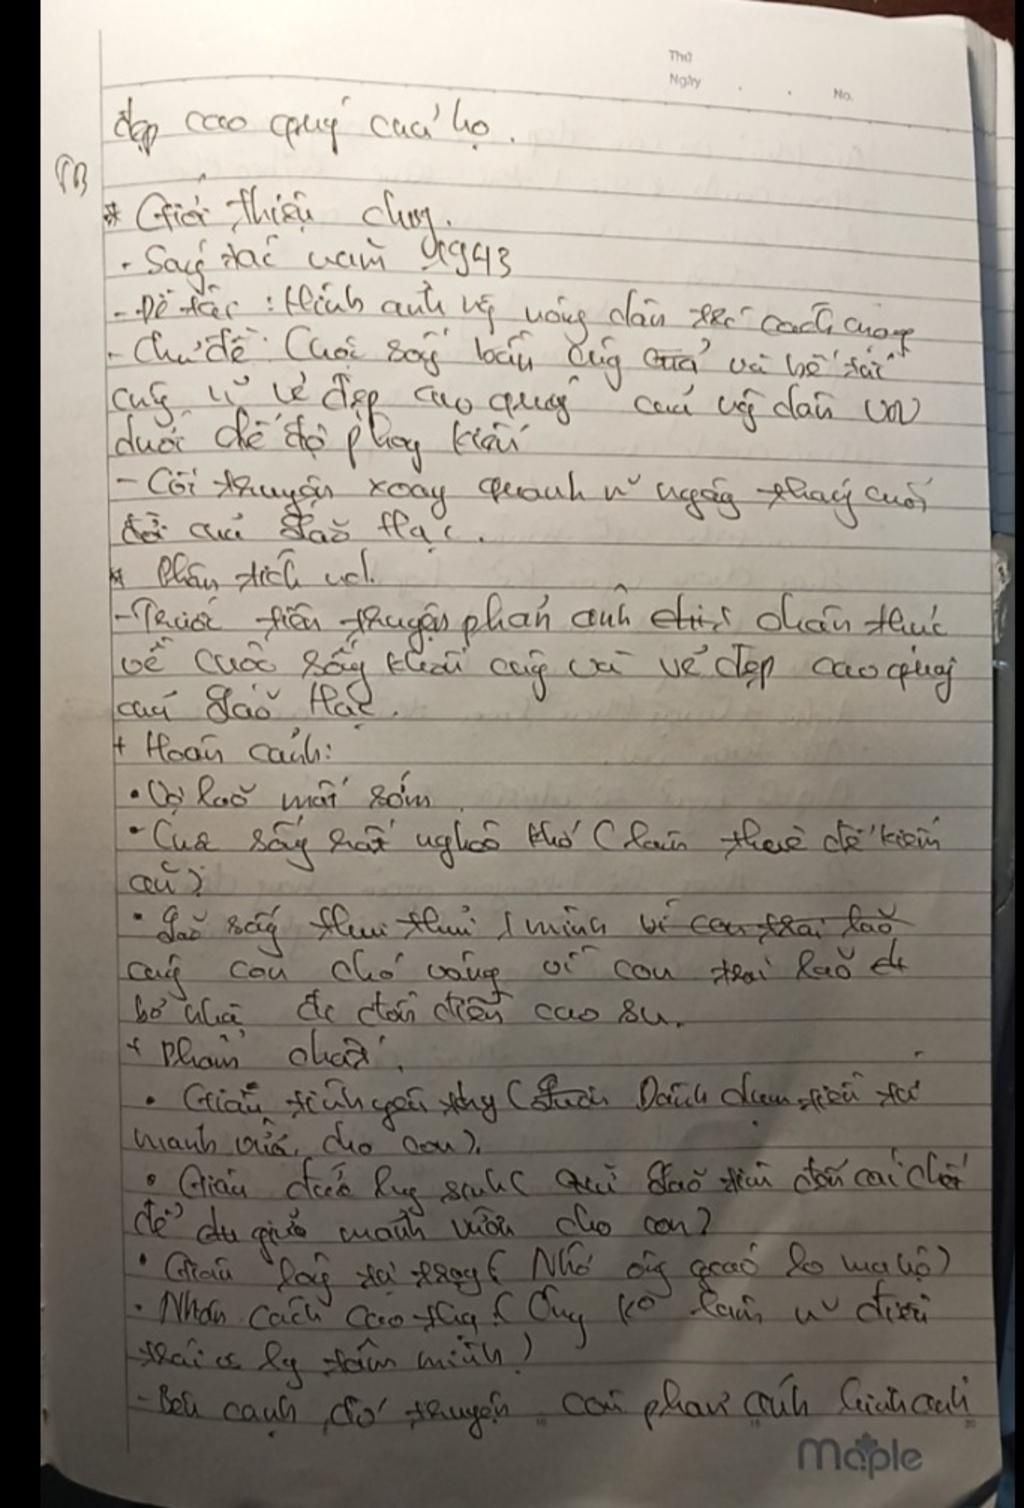 Thứ
Ngày . . No.
đẹp cao quý của họ.
TB
* Giới thiệu chung.
- Sáng tác năm 1943
- Đề tài: Hình ảnh ng nông dân trc cách mạng
- Chủ đề: Cuộc sống bần cùng và bế tắc
cùng vẻ đẹp cao quý của ng dân VN
dưới chế độ phong kiến
- Cốt truyện xoay quanh n~ ngày tháng cuối
đời của lão Hạc.
* Phân tích
- Trước tiên truyện phản ánh chân thực
về cuộc sống khốn cùng và vẻ đẹp cao quý
của lão Hạc.
+ Hoàn cảnh:
• Vợ lão mất sớm.
• Cuộc sống rất nghèo khó (làm thuê để kiếm
ăn)
• Lão sống thui thủi 1 mình vì con trai lão
cùng con chó vàng vì con trai lão đã
bỏ nhà đi đồn điền cao su.
+ Phẩm chất.
• Giàu tình yêu thg ( Dành dụm tiền và
mảnh vườn cho con).
• Giàu đức hy sinh ( lão tìm đến cái chết
để giữ mảnh vườn cho con)
• Giàu lòng tự trọng ( Nhờ ông giáo lo ma hộ)
• Nhân cách cao thg ( Ông ko làm n~ điều
trái vs lg tâm mình)
- Bên cạnh đó truyện còn phản ánh hình ảnh
Maple